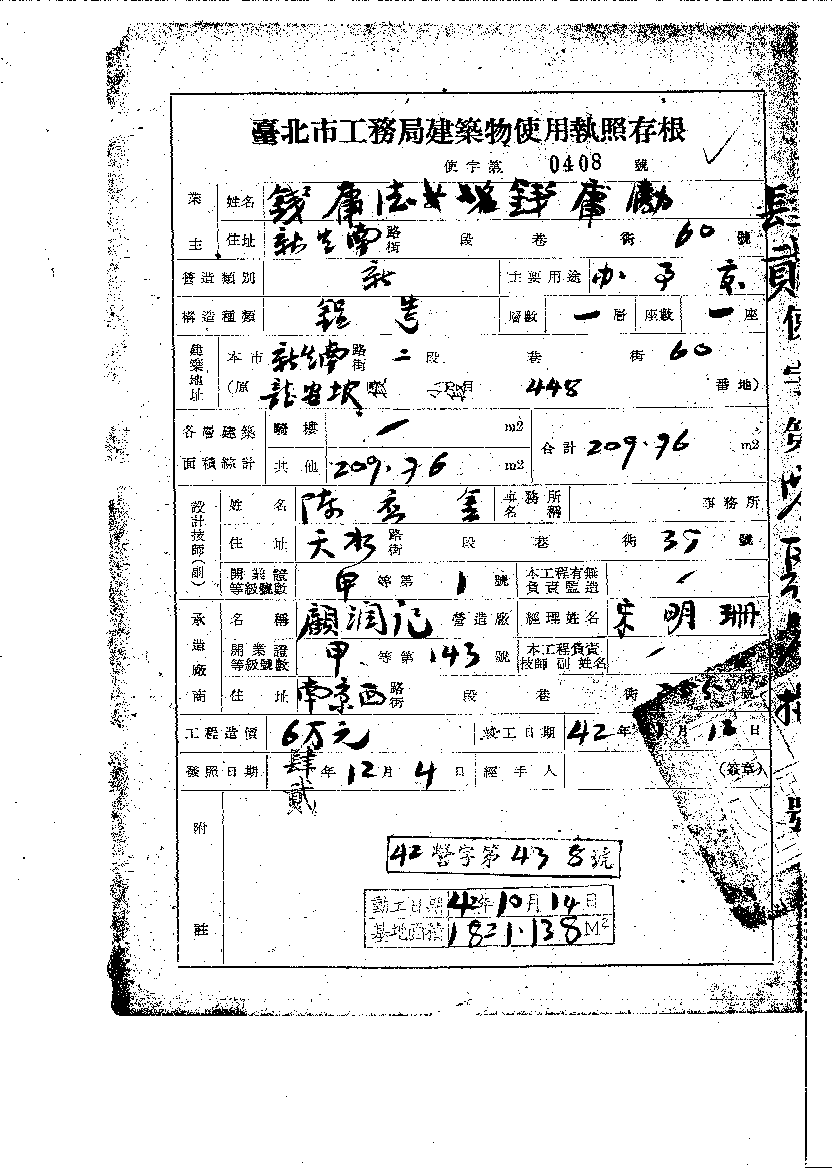 臺北市工務局建築物使用執照存根
使字第 0408 號
業主 姓名 錢庸 錢庸
住址 新生南路街 段 巷 街 60 號
營造類別 新 主要用途
構造種類 造 層數 一層 座數 一座
建築地址 本市 新生南路街 二段 巷 街 60
(原 龍安坡 448 番地)
各層建築面積綜計 騎樓 / m2 合計 209.76 m2
其他 209.76 m2
設計技師(副) 姓名 陳 金 事務所名稱 事務所
住址 天水路街 段 巷 街 35 號
開業證等級號數 甲等第 1 號 本工程有無負責監造 /
承造廠商 名稱 顧潤記 營造廠 經理姓名 宋明珊
開業證等級號數 甲等第 143 號 本工程負責技師副姓名 /
住址 南京西路街 段 巷 街 號
工程造價 6万元 竣工日期 42年 月 12日
發照日期 肆貳年 12月 4日 經手人 (簽章)
附註
42營字第438號
動工日期 42年10月14日
基地面積 1821.138 M2